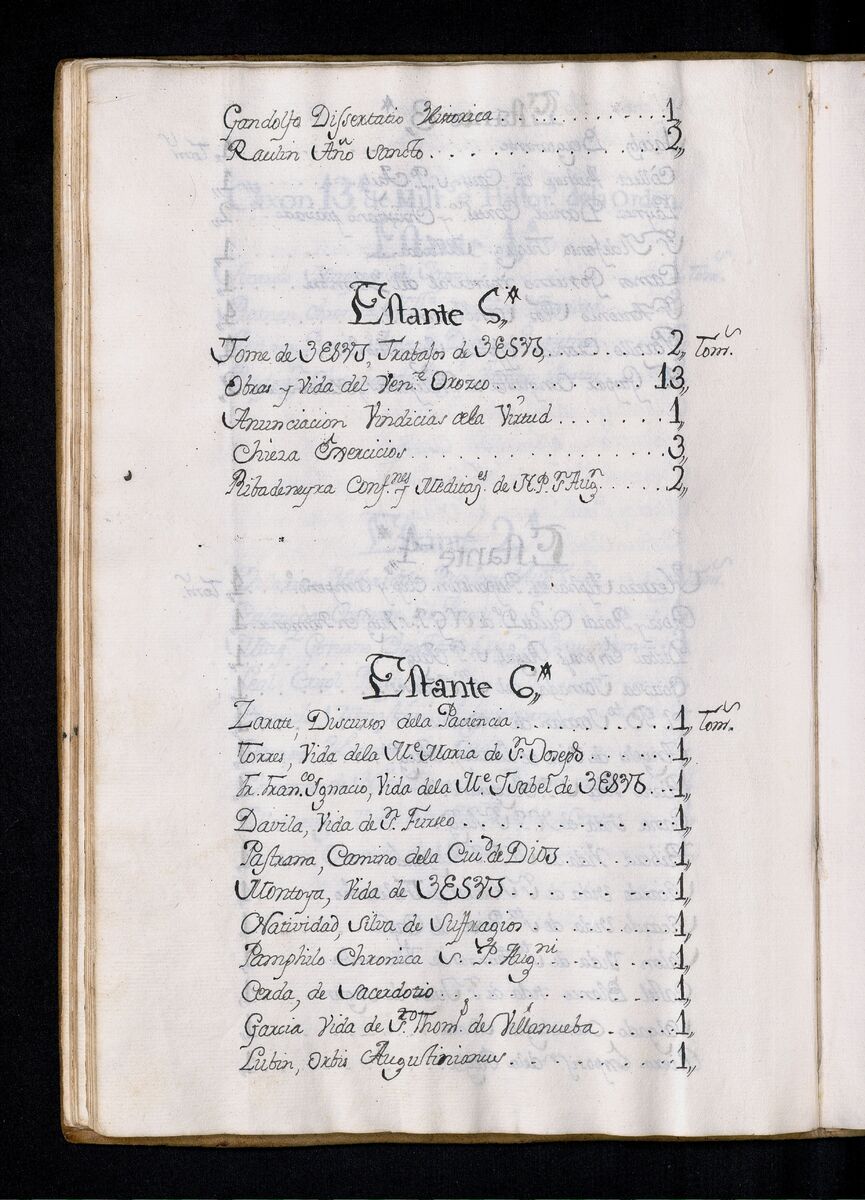 Gandolfo Dissertatio Historica . . . . . . . . . . . 1,,
Raulin Año Sancto . . . . . . . . . . . . . . . 2,,
Estante 5,,ª
Tome de JESUS, Trabajos de JESUS, . . . . . . . 2,, Tom.ˢ
Obras y Vida del Ven.ᵉ Orozco . . . . . . . . . 13,,
Anunciacion Vindicias de la Virtud . . . . . . . 1,,
Chieza Exercicios . . . . . . . . . . . . . . . 3,,
Ribadeneyra Conf.ⁿᵉˢ y Meditaz.ᵉˢ de N. P. Sⁿ Aug.ⁿ . . . . . 2,,
Estante 6,,ª
Zarate, Discursos dela Paciencia . . . . . . . . . 1,, Tom.ˢ
Torres, Vida dela M.ᵉ Maria de Sⁿ. Joseph . . . . . . 1,,
Fr. Fran.ᶜᵒ Ignacio, Vida dela M.ᵉ Isabel de JESUS . . . 1,,
Davila, Vida de Sⁿ. Furseo . . . . . . . . . . . . 1,,
Pastrana, Camino dela Ciu.ᵈ de Dios . . . . . . . . 1,,
Montoya, Vida de JESUS . . . . . . . . . . . . 1,,
Natividad, Silva de Suffragios . . . . . . . . . . 1,,
Pamphilo Chronica S. P. Aug.ⁿⁱ . . . . . . . . . 1,,
Cerda, de Sacerdotio . . . . . . . . . . . . . . 1,,
Garcia Vida de S.ᵗᵒ Thom.ˢ de Villanueba . . . . . . 1,,
Lubin, Orbis Augustinianus . . . . . . . . . . . 1,,